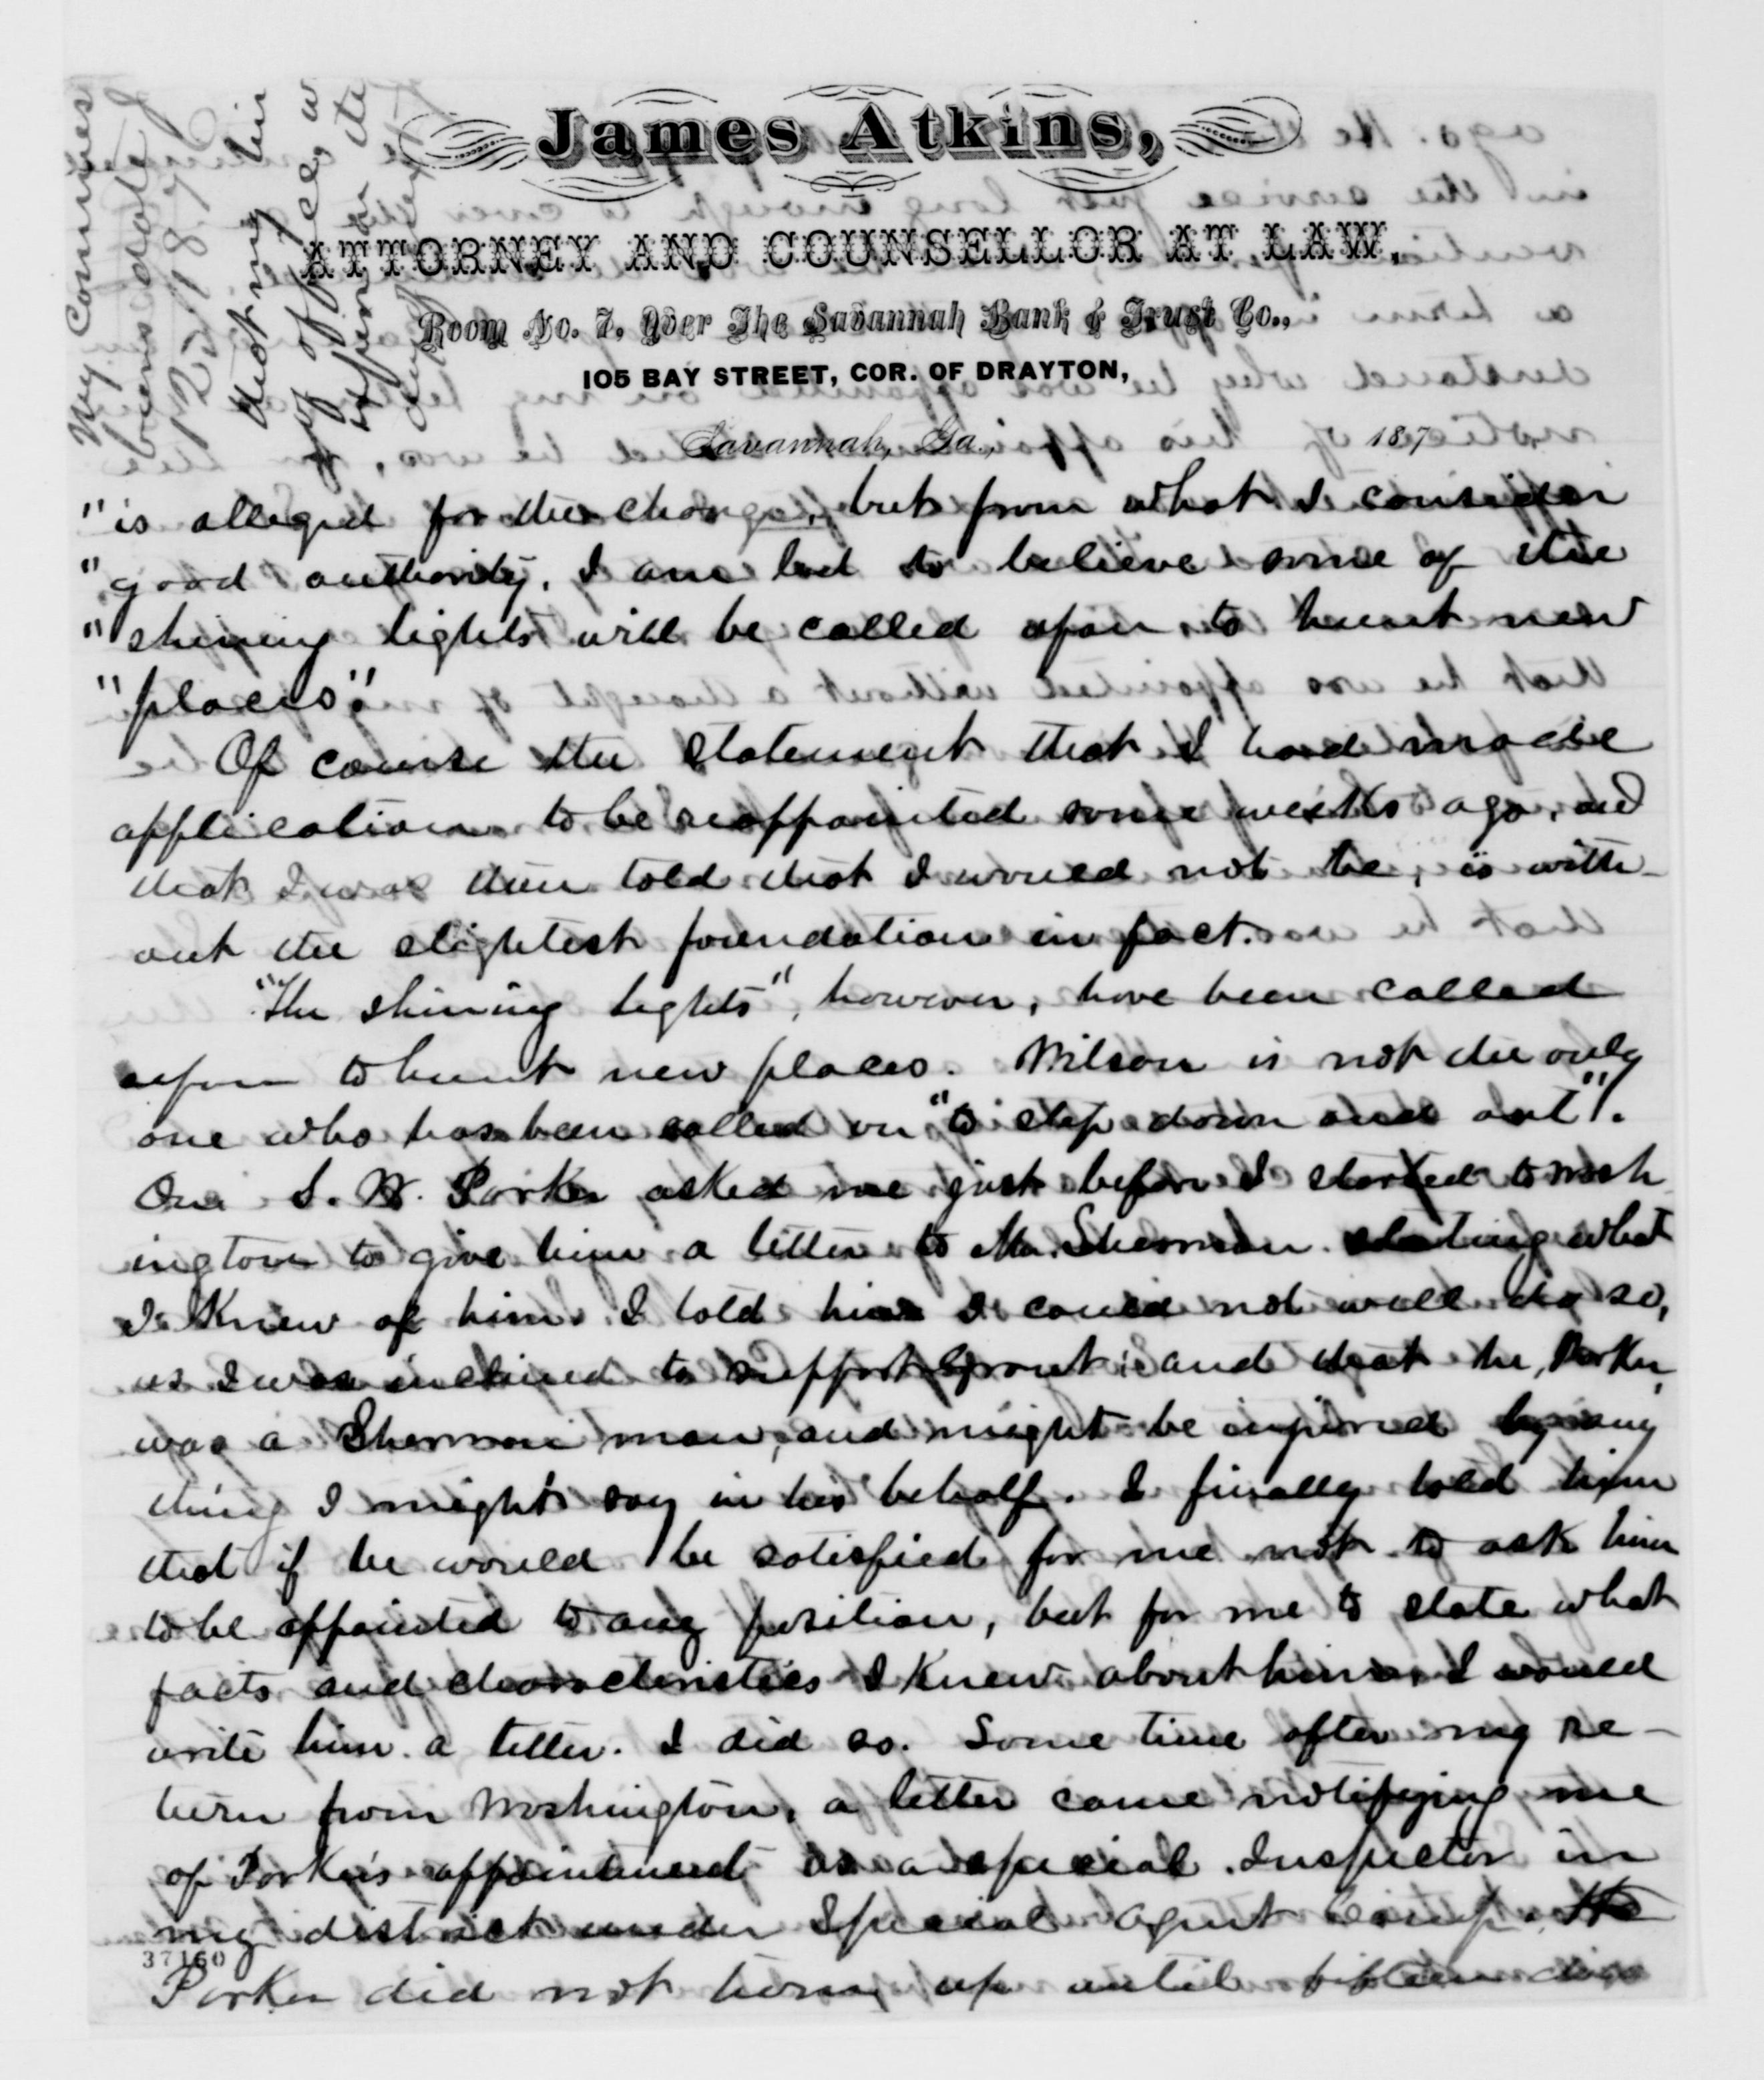 James Atkins,
ATTORNEY AND COUNSELLOR AT LAW,
Room No. 7, Over The Savannah Bank & Trust Co.,
105 BAY STREET, COR. OF DRAYTON,
Savannah, Ga., 187
"is alleged for the change, but from what I consider
"good authority, I am led to believe some of the
"shining lights will be called upon to hunt new
"places".
Of course the statement that I had made
application to be reappointed some weeks ago, and
that I was then told that I would not be, is with-
out the slightest foundation in fact.
"The shining lights", however, have been called
upon to hunt new places. Wilson is not the only
one who has been called on "to step down and out".
One S. W. Parker asked me just before I started to Wash
ington to give him a letter to Mr. Sherman stating what
I knew of him. I told him I could not well do so,
as I was inclined to support Grant; and that he, Parker,
was a Sherman man, and might be injured by any
thing I might say in his behalf. I finally told him
that if he would be satisfied for me not to ask him
to be appointed to any position, but for me to state what
facts and characteristics I knew about him, I would
write him a letter. I did so. Some time after my re-
turn from Washington, a letter came notifying me
of Parker's appointment as a special Inspector in
my district under Special Agent Camp. 
Parker did not turn up until fifteen days
37160
My Commis
bears date
1878
that my